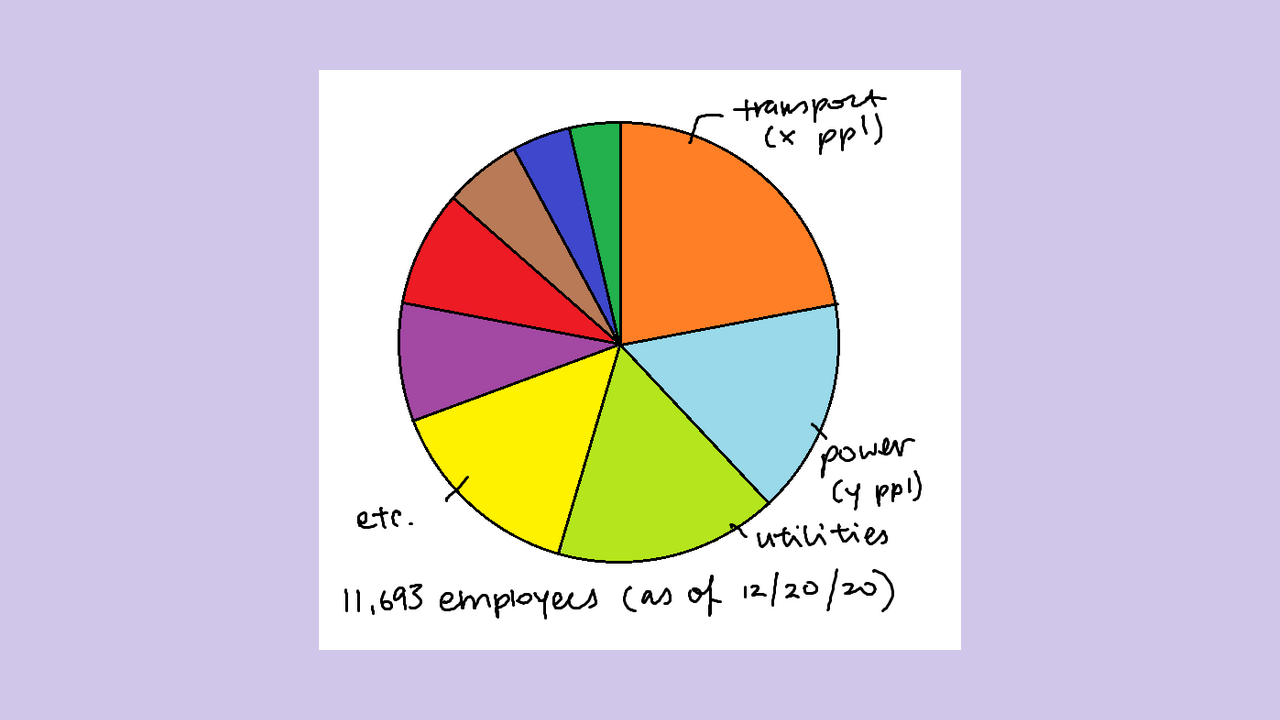 transport
(x ppl)
power
(y ppl)
utilities
etc.
11,693 employees (as of 12/20/20)